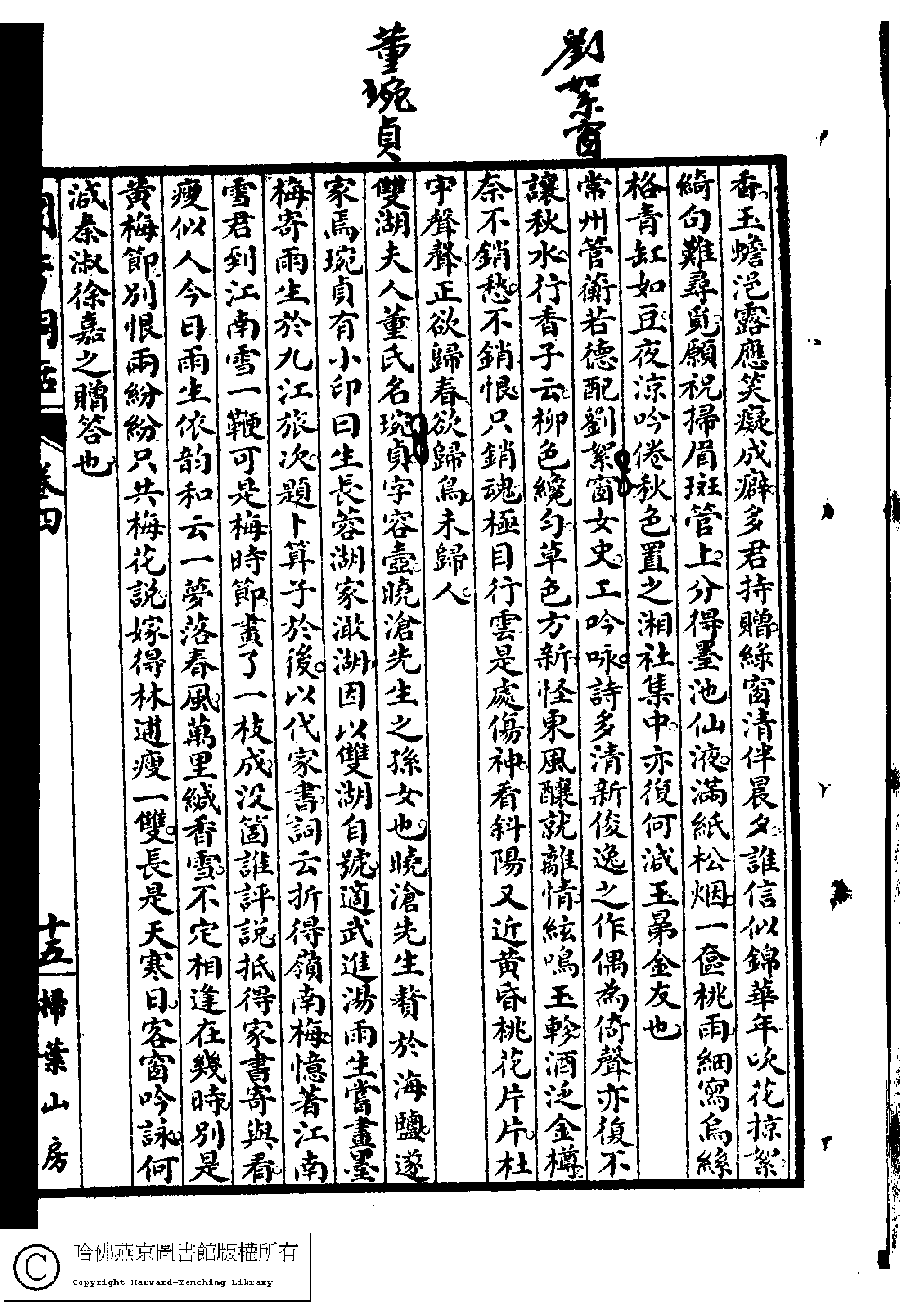 劉絮窗
董琬貞
香玉蟾浥露應笑癡成癖多君持贈綠窗清伴晨夕誰信似錦華年吹花掠絮
綺句難尋覓願祝掃眉斑管上分得墨池仙液滿紙松烟一奩桃雨細寫烏絲
格青缸如豆夜涼吟倦秋色置之湘社集中亦復何減玉鼎金友也
常州管蘅若德配劉絮窗女史工吟咏詩多清新俊逸之作偶為倚聲亦復不
讓秋水行香子云柳色纔勻草色方新怪東風釀就離情絃鳴玉軫酒泛金樽
奈不銷愁不銷恨只銷魂極目行雲是處傷神看斜陽又近黃昏桃花片片杜
宇聲聲正欲歸春欲歸烏未歸人
雙湖夫人董氏名琬貞字容壺曉滄先生之孫女也曉滄先生贅於海鹽遂
家焉琬貞有小印曰生長蓉湖家澉湖因以雙湖自號適武進湯雨生嘗畫墨
梅寄雨生於九江旅次題卜算子於後以代家書詞云折得嶺南梅憶著江南
雪君到江南雪一鞭可是梅時節畫了一枝成沒箇誰評說抵得家書寄與看
瘦似人今日雨生依韵和云一夢落春風萬里緘香雪不定相逢在幾時別是
黃梅節別恨兩紛紛只共梅花說嫁得林逋瘦一雙長是天寒日客窗吟詠何
減秦淑徐嘉之贈答也
卷四
十五
掃葉山房
哈佛燕京圖書館版權所有
Copyright Harvard-Yenching Library